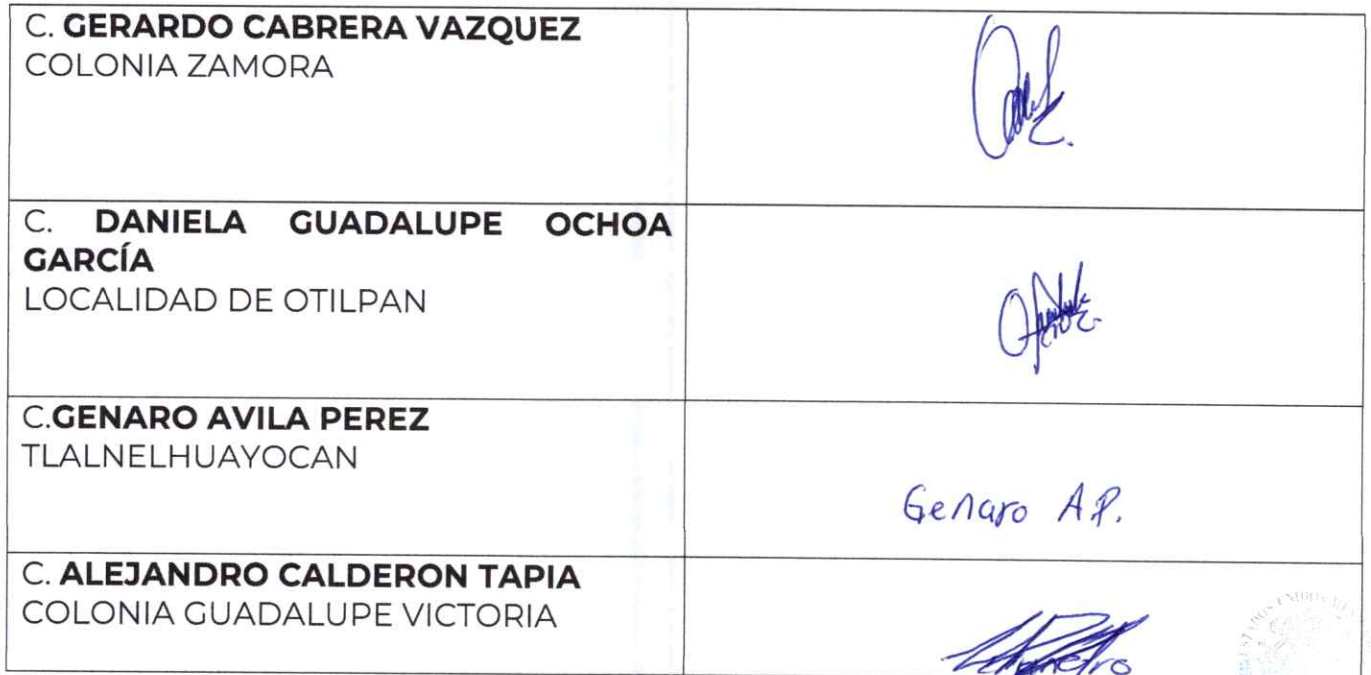 C. GERARDO CABRERA VAZQUEZ
COLONIA ZAMORA
C. DANIELA GUADALUPE OCHOA
GARCÍA
LOCALIDAD DE OTILPAN
C.GENARO AVILA PEREZ
TLALNELHUAYOCAN
Genaro A.P.
C. ALEJANDRO CALDERON TAPIA
COLONIA GUADALUPE VICTORIA